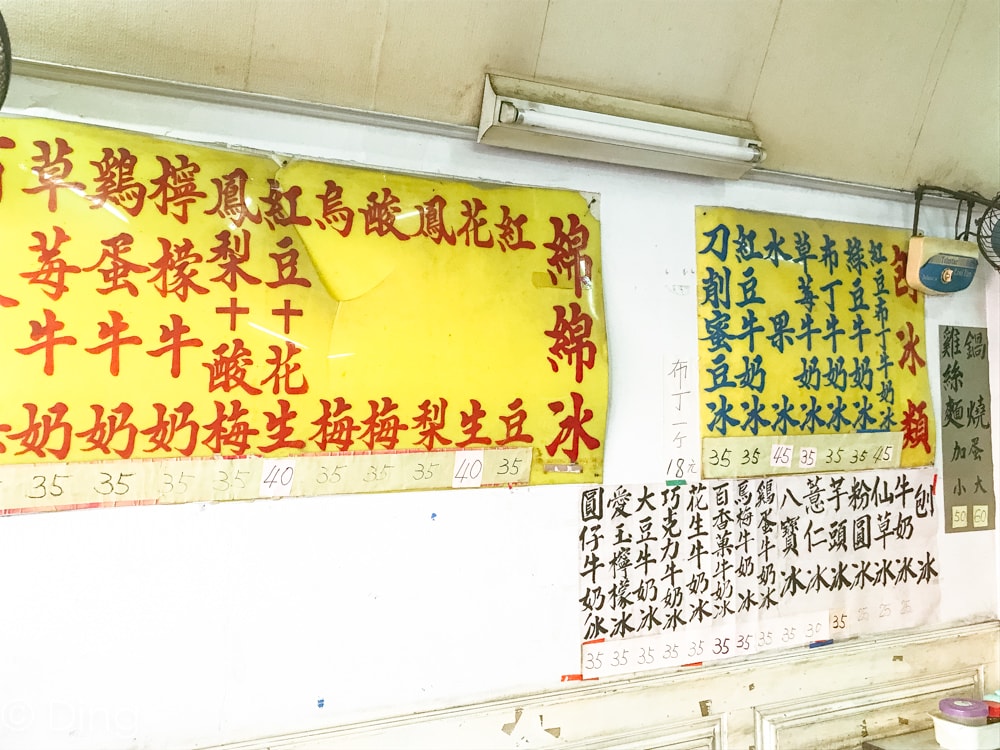 綿綿冰
紅豆 35
花生 40
鳳梨 35
酸梅 35
烏梅 35
紅豆+花生 40
鳳梨+酸梅 35
檸檬牛奶 35
鷄蛋牛奶 35
草莓牛奶 35
布丁一ケ 18元
刨冰類
紅豆布丁牛奶冰 45
綠豆牛奶冰 35
布丁牛奶冰 35
草莓牛奶冰 35
水果冰 45
紅豆牛奶冰 35
刀削蜜豆冰 35
鍋燒
雞絲麵
加蛋
大 60
小 50
刨冰
牛奶冰 25
仙草冰 25
粉圓冰 25
芋頭冰 35
薏仁冰 35
八寶冰 35
鷄蛋牛奶冰 35
烏梅牛奶冰 35
百香菓牛奶冰 35
花生牛奶冰 35
巧克力牛奶冰 35
大豆牛奶冰 35
愛玉檸檬冰 35
圓仔牛奶冰 35